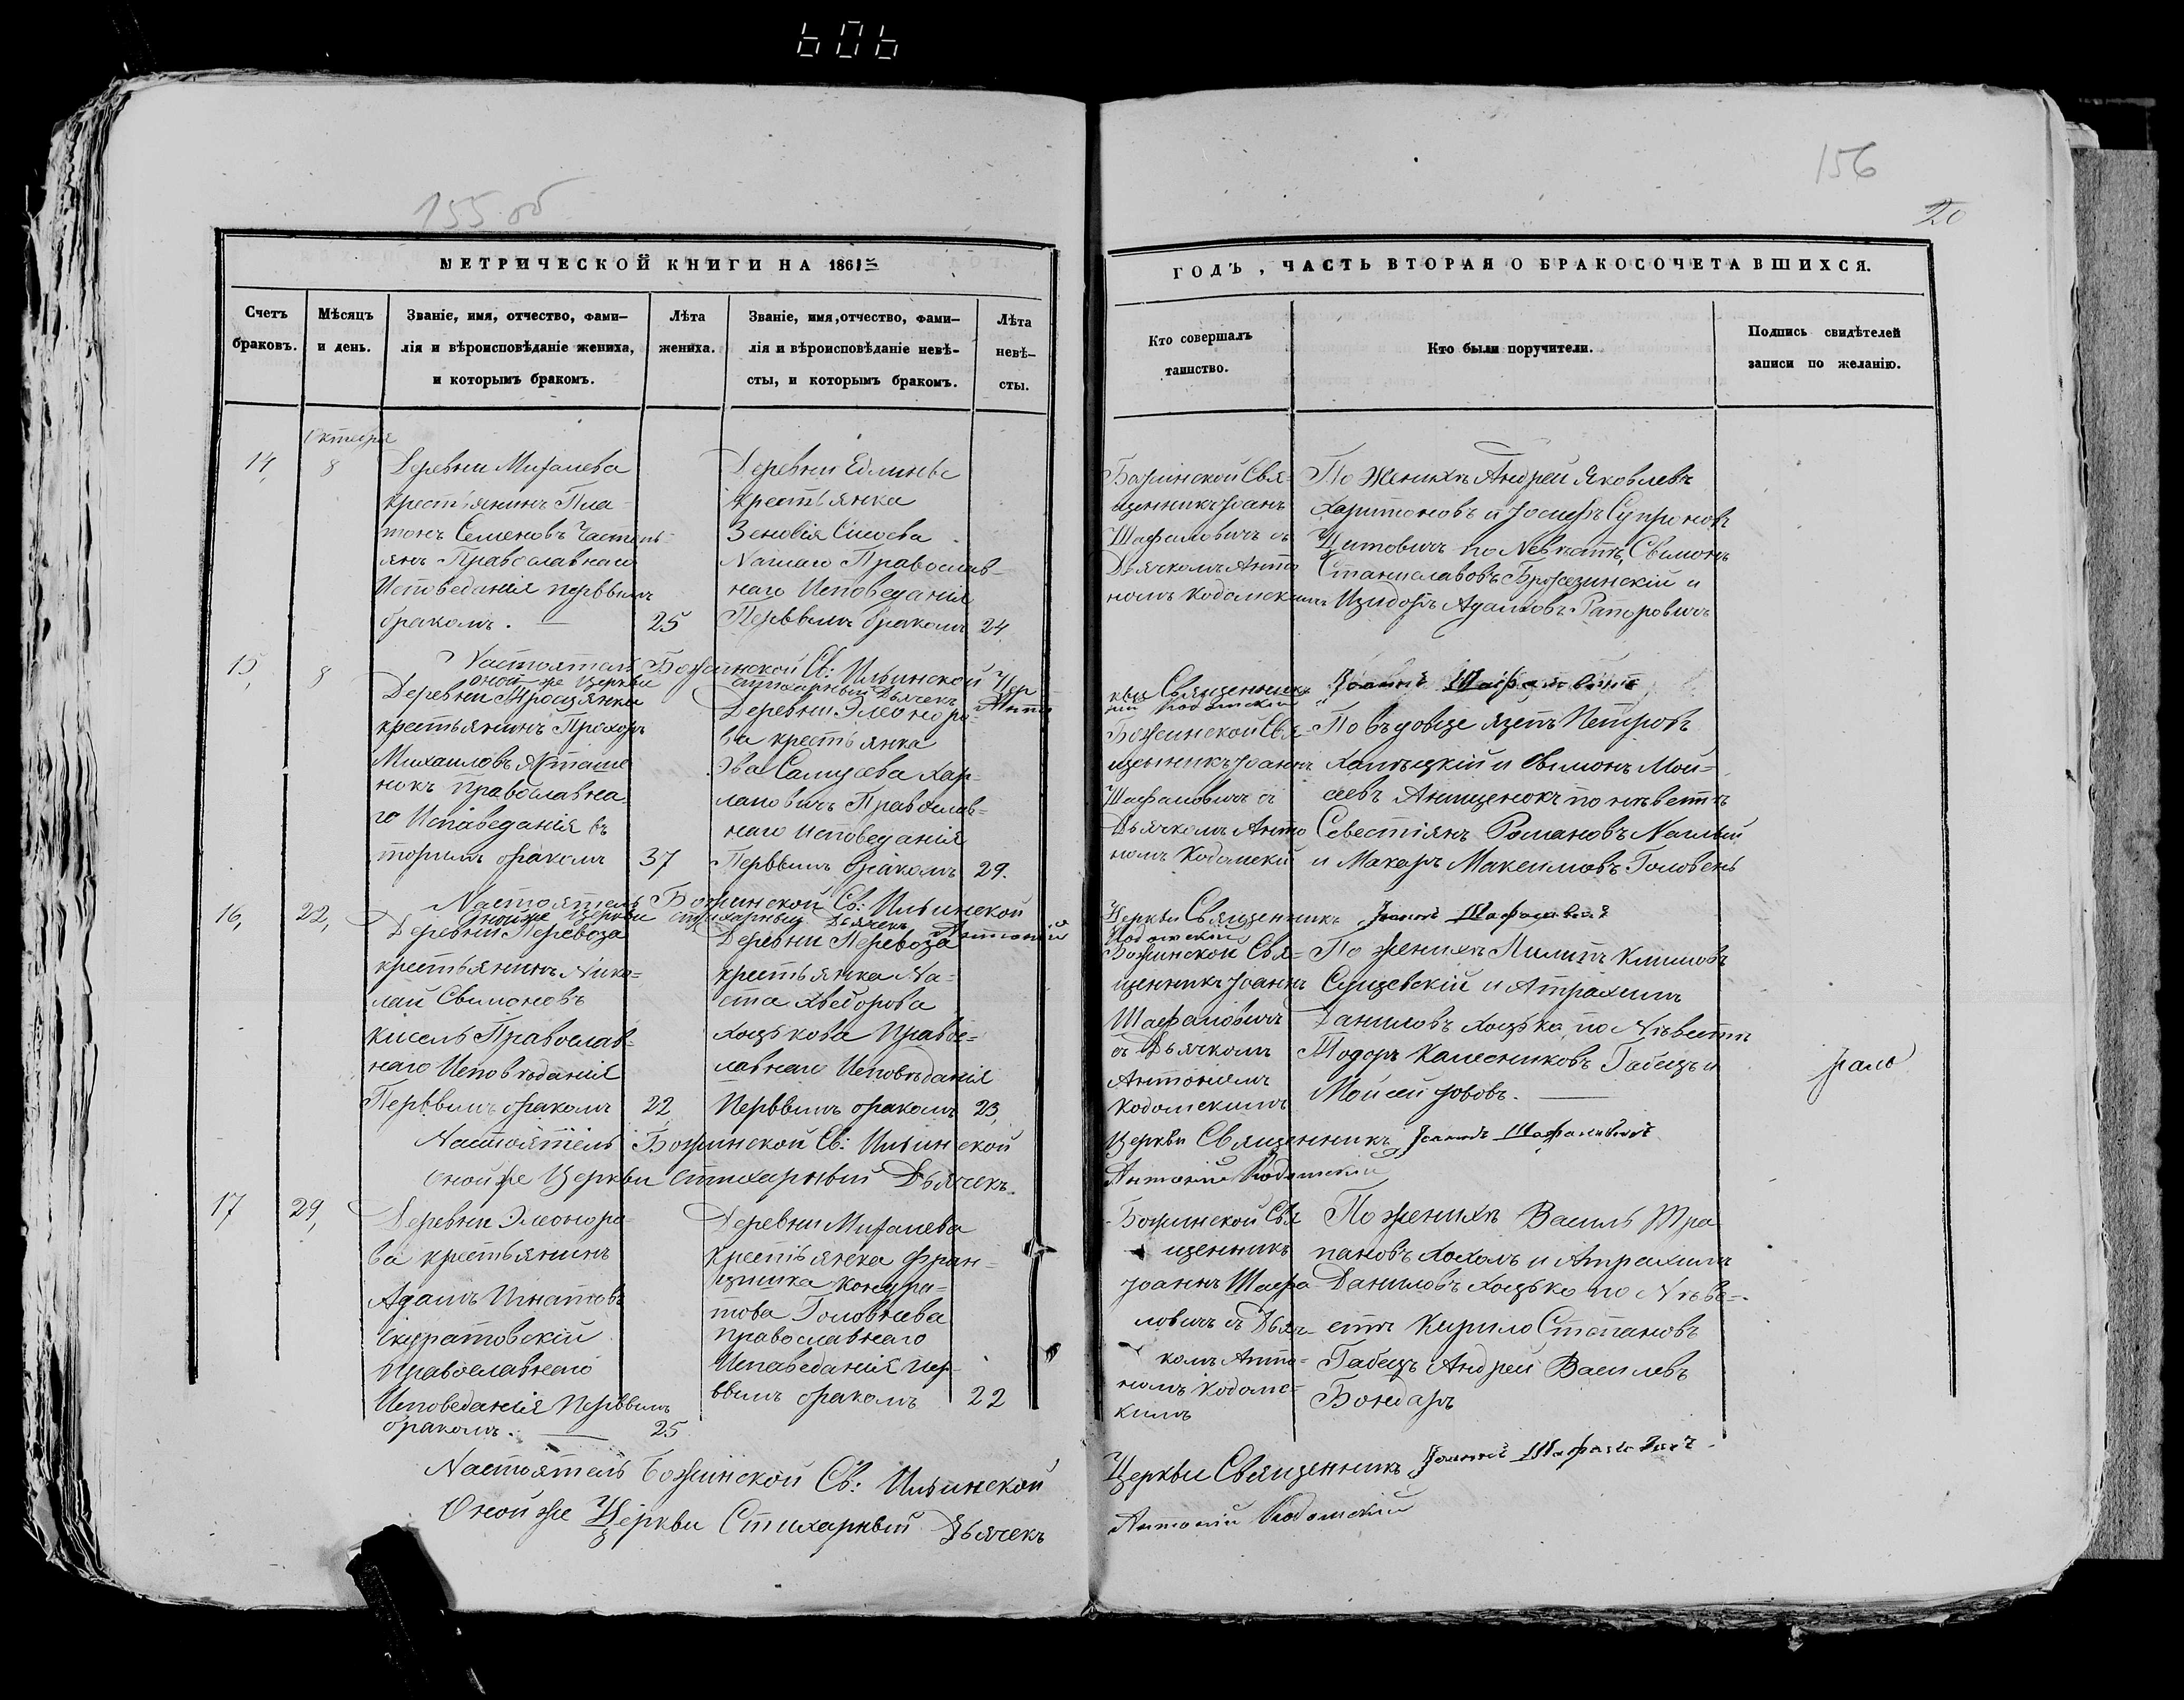 606
155 об
156
20
МЕТРИЧЕСКОЙ КНИГИ НА 1861й
ГОДЪ, ЧАСТЬ ВТОРАЯ О БРАКОСОЧЕТАВШИХСЯ.
Счетъ браковъ.
Мѣсяцъ и день.
Званіе, имя, отчество, фами-
лія и вѣроисповѣданіе жениха,
и которымъ бракомъ.
Лѣта жениха.
Званіе, имя, отчество, фами-
лія и вѣроисповѣданіе невѣ-
сты, и которымъ бракомъ.
Лѣта невѣ-
сты.
Кто совершалъ
таинство.
Кто были поручители.
Подпись свидѣтелей
записи по желанію.
Октября
14, 8
Деревни
крестьянинъ Пла-
тонъ Семеновъ
янъ Православнаго
Исповеданія первымъ
бракомъ. — 25
Деревни
крестьянка
Зеновія
Православ-
наго Исповеданія
Первымъ бракомъ 24
Божинской Свя-
щенникъ Іоанъ
Шафаловичъ съ
Дьячкомъ Анто
номъ Кодомскимъ
По Женихѣ Андрей Яковлевъ
Харитоновъ и Іосифъ Супроновъ
по Невѣстѣ Свимонъ
Станиславовъ Бржезинскій и
Изидоръ Адамовъ
Настоятель Божинской Св: Ильинской Цер
кви Священникъ Іоаннъ Шафаловичъ
оной же Церкви стихарный Дьячекъ Анто
ній Кодомскій
15, 8
Деревни
крестьянинъ Прохоръ
Михаиловъ
нокъ Православна
го Исповеданія в
торымъ бракомъ 37
Деревни Элеоноро-
ва крестьянка
Эва Самусева Хар-
лановичъ Православ-
наго Исповеданія
Первымъ бракомъ 29.
Божинской Свя-
щенникъ Іоаннъ
Шафаловичъ съ
Дьячкомъ Анто
номъ Кодомскій
По въдовце Язепъ Петровъ
и Свимонъ Мои-
сеевъ Анищенокъ по нѣвестѣ
Севестіянъ Романовъ
и Макаръ Максимовъ Головень
Настоятель Божинской Св: Ильинской
Церкви Священникъ Іоаннъ Шафаловичъ
Оной же Церкви стихарный Дьячекъ Антоній
Кодомскій
16, 22,
Деревни Перевоза
крестьянинъ Нико-
лай Свимоновъ
Кисель Православ-
наго Исповѣданія
Первымъ бракомъ 22
Деревни Перевоза
крестьянка На-
ста Хведорова
Хоцькова Правос-
лавнаго Исповѣданія
Первымъ бракомъ 23,
Божинской Свя-
щенникъ Іоаннъ
Шафаловичъ
съ Дьячкомъ
Антоніемъ
Кодомскимъ
По женихѣ Пилипъ Климовъ
Сущевскій и Атрахимъ
Даниловъ Хоцько по Нѣвесте
Тодоръ Колесниковъ Габецъ и
Мойсей Зововъ. —
Настоятель Божинской Св: Ильинской
Церкви Священникъ Іоаннъ Шафаловичъ
Оной же Церкви Стихарный Дьячекъ
Антоній Кодомскій
17 29,
Деревни Элеоноро-
ва крестьянинъ
Адамъ Игнатовъ
Православнаго
Исповеданія Первымъ
бракомъ. — 25
Деревни
Крестьянка Фран-
цишка Кондра-
това Головнева
Православнаго
Исповеданія пер-
вымъ бракомъ 22
Божинской Свя
щенникъ
Іоаннъ Шафа
ловичъ съ Дьяч-
комъ Анто-
номъ Кодомс-
кимъ
По женихѣ Василь
Хохолъ и Атрахимъ
Даниловъ Хоцько по Нѣве-
стѣ Кирило Степановъ
Габецъ Андрей Василевъ
Бондаръ
Настоятель Божинской Св: Ильинской
Церкви Священникъ Іоаннъ Шафаловичъ
Оной же Церкви Стихарный Дьячекъ
Антоній Кодомскій